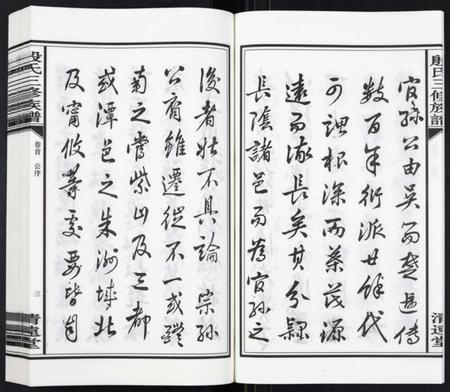 殷氏三修族譜
清遠堂
官孫公由吳而楚遞傳
數百年衍派廿餘代
可謂根深而葉茂源
遠而流長矣其分隸
長陰諸邑而為官孫之
後者姑不具論宗孫
公裔雖遷徙不一或醴
南之嘗紫山及三都
或潭邑之朱洲城北
及甯攸等處要皆自
殷氏三修族譜
卷首
公序
三
清遠堂